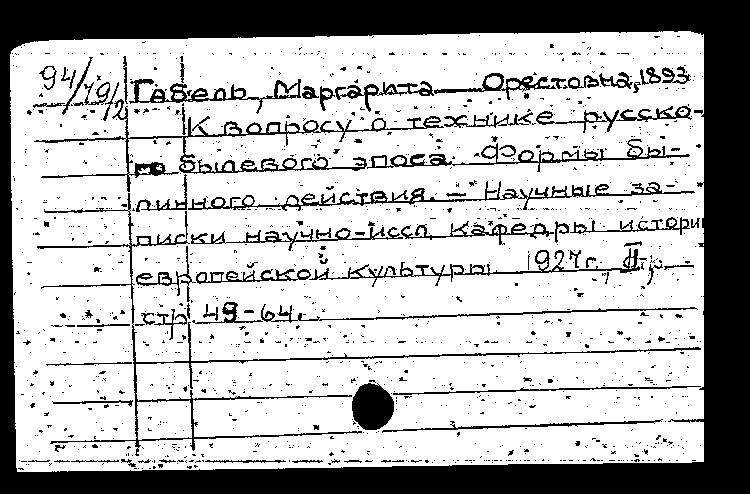 94/19/2 Габель, Маргарита Орестовна, 1893
К вопросу о технике русско-
го былевого эпоса. Формы бы-
линного действия. – Научные за-
писки научно-иссл. кафедры истории
европейской культуры 1927г., II,
стр 49-64.